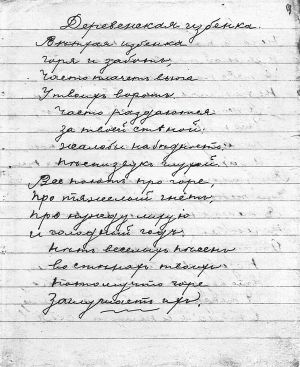 Деревенская избенка.
Ветхая избенка
Горя и заботъ,
Часто плачетъ вьюга
У твоихъ воротъ.
Часто раздаются
За твоей стѣной
Жалобы на бѣдность,
Пѣсни звукъ глухой.
Всѣ поютъ про горе,
Про тяжелый гнетъ,
Про нужду лихую
и голодный годъ.
Нѣтъ веселыхъ пѣсенъ
Во стѣнахъ твоихъ
Потому что горе
Заглушаетъ ихъ.